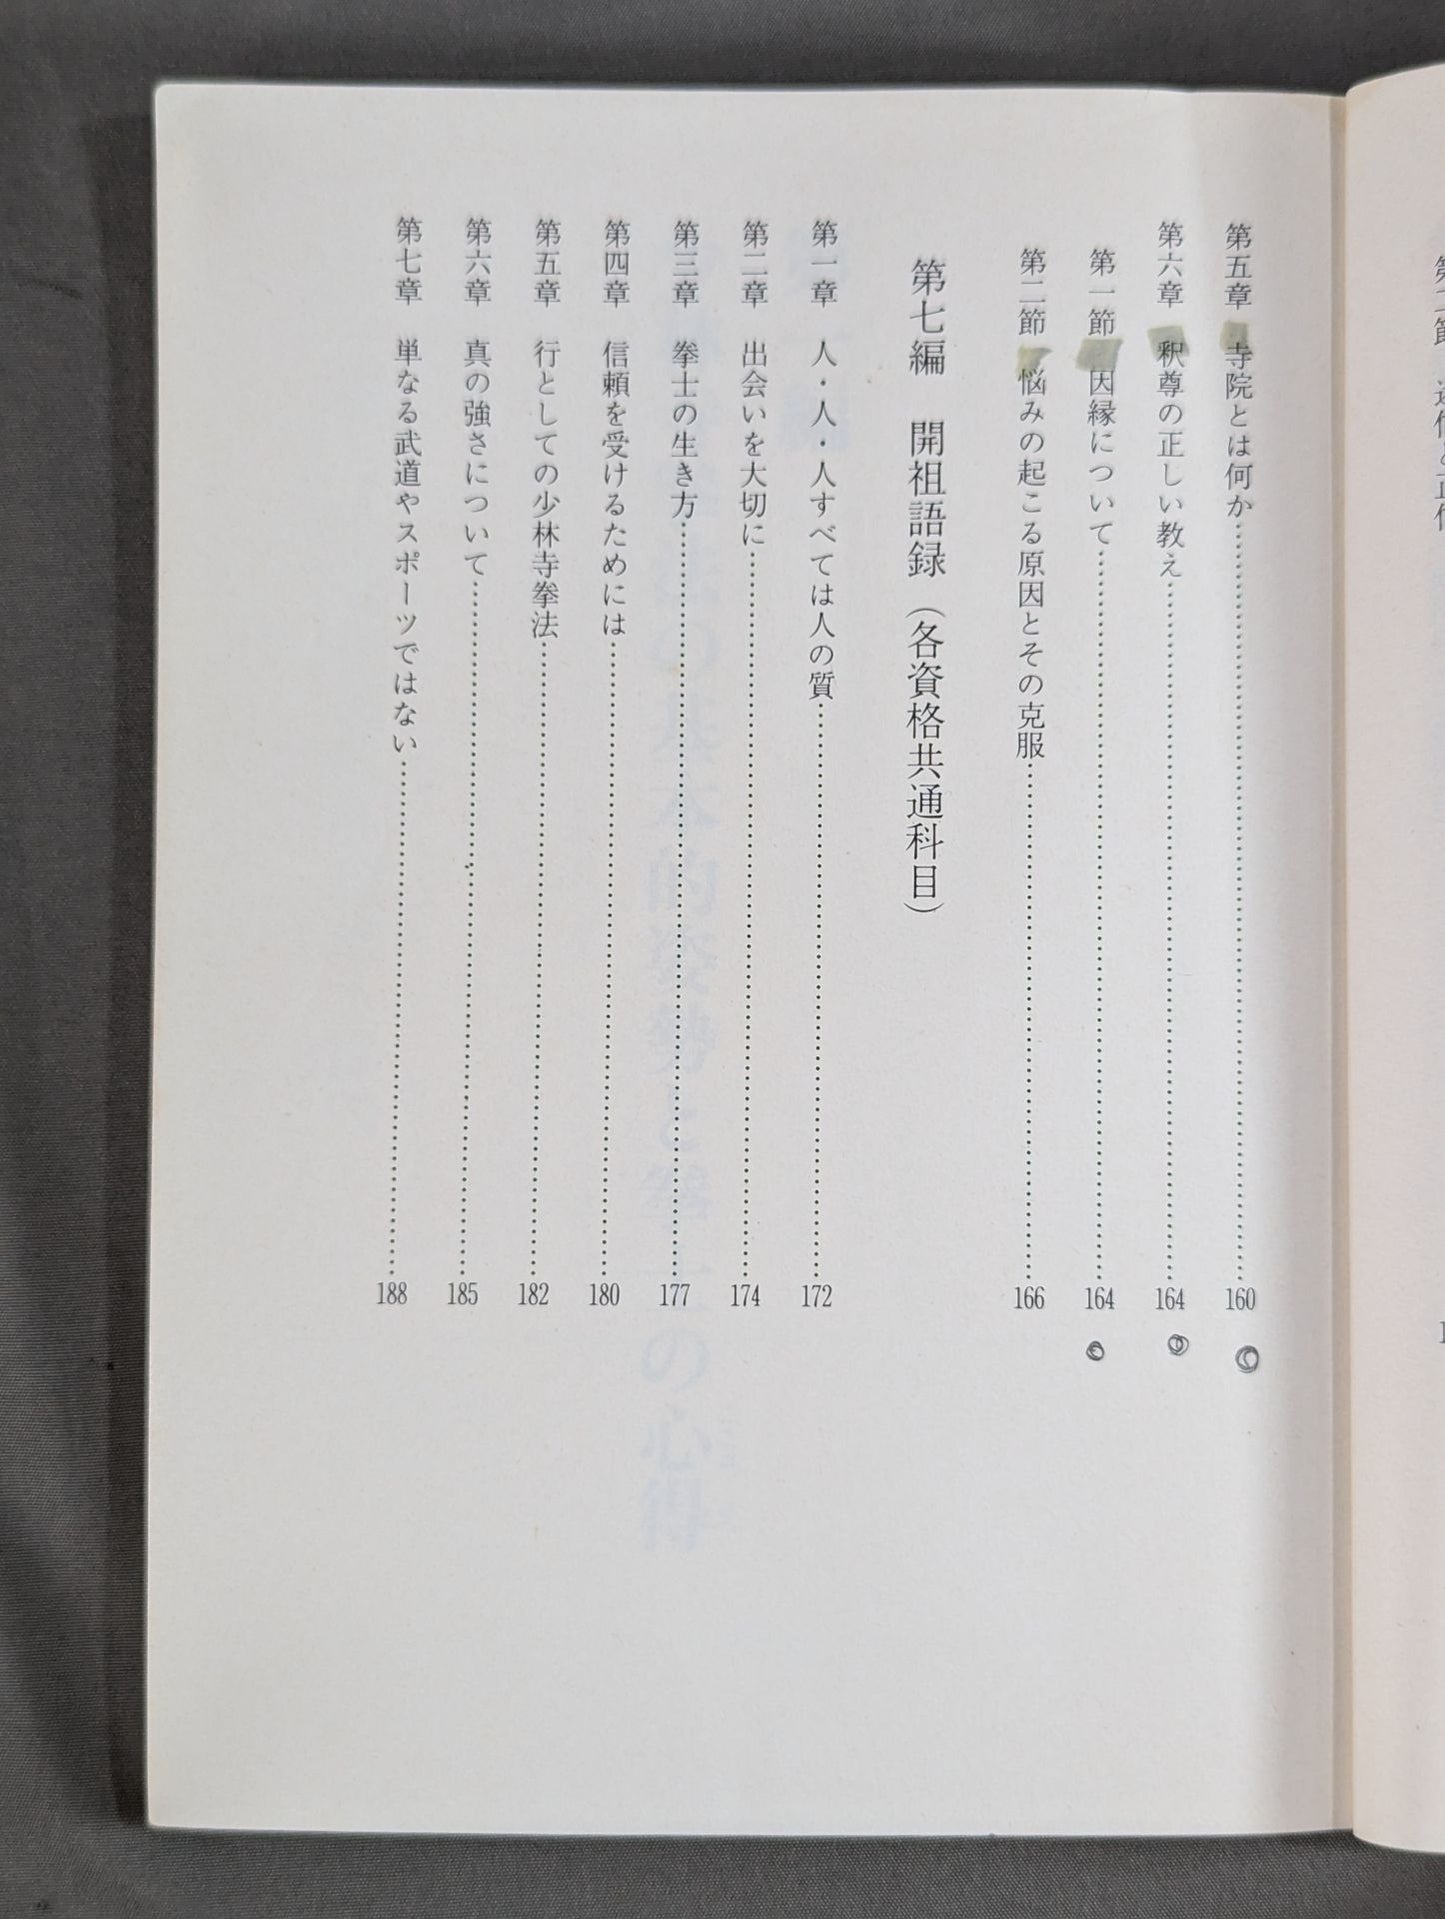 第五章 寺院とは何か……160
第六章 釈尊の正しい教え……164
第一節 因縁について……164
第二節 悩みの起こる原因とその克服……166
第七編 開祖語録（各資格共通科目）
第一章 人・人・人すべては人の質……172
第二章 出会いを大切に……174
第三章 拳士の生き方……177
第四章 信頼を受けるためには……180
第五章 行としての少林寺拳法……182
第六章 真の強さについて……185
第七章 単なる武道やスポーツではない……188